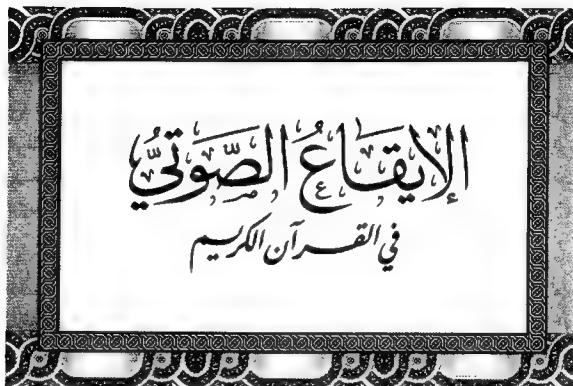 الإيقَاعُ الصَّوتيُّ
في القرآن الكريم